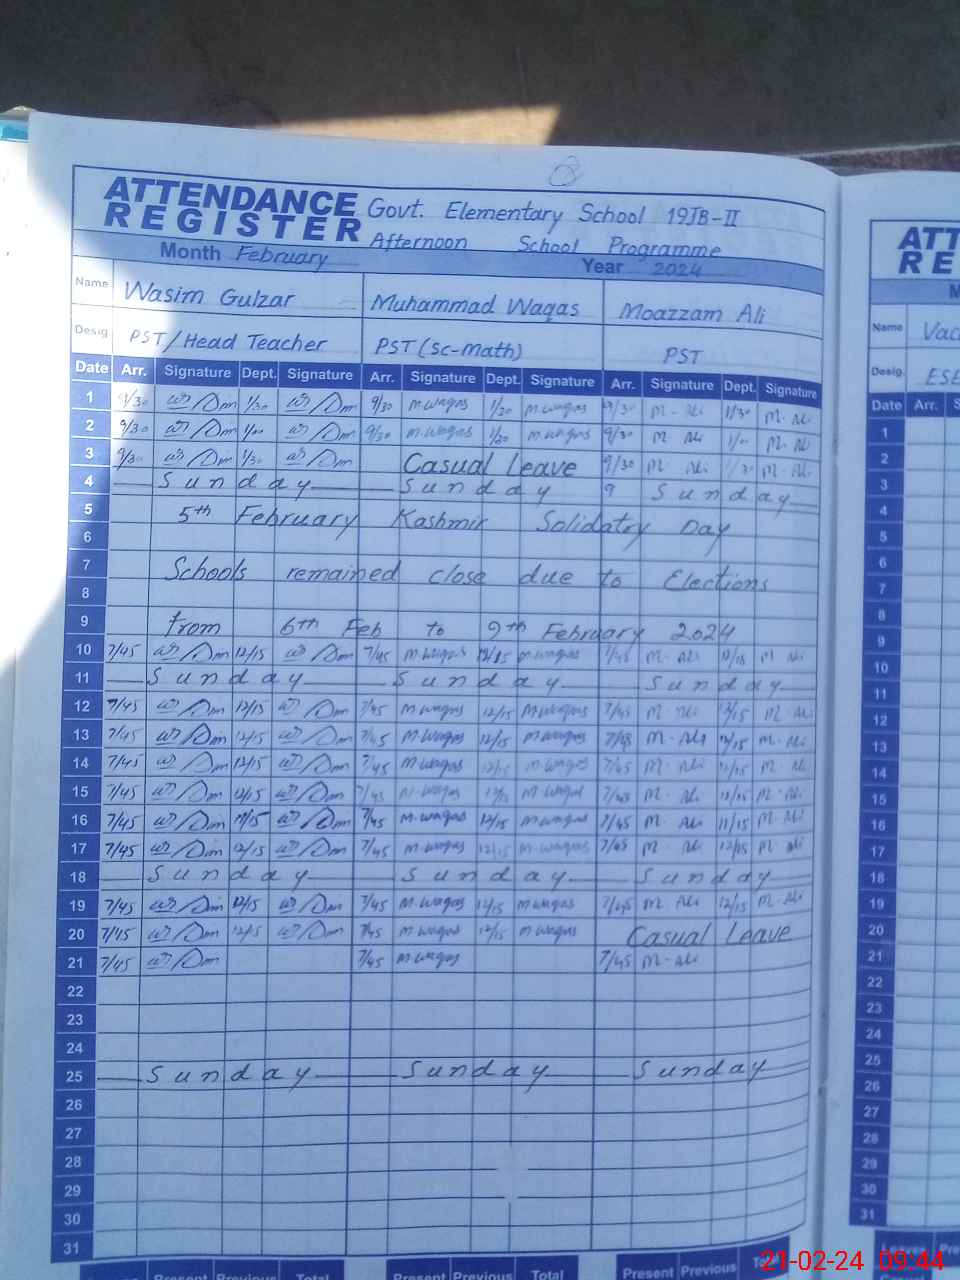 ATTENDANCE REGISTER Govt. Elementary School 19JB-II
Afternoon School Programme
Month February Year 2024
Name Wasim Gulzar Muhammad Waqas Moazzam Ali
Desig. PST/Head Teacher PST (Sc-Math) PST
Date Arr. Signature Dept. Signature Arr. Signature Dept. Signature Arr. Signature Dept. Signature
1 9/30 1/30 9/30 m.waqas 1/30 m.waqas 9/30 M. Ali 1/30 M. Ali
2 9/30 9/30 m.waqas m.waqas 9/30 M. Ali M. Ali
3 9/30 1/30 Casual Leave 9/30 M. Ali 1/30 M. Ali
4 Sunday Sunday 9 Sunday
5 5th February Kashmir Solidatry Day
6
7 Schools remained close due to Elections
8
9 from 6th Feb to 9th February 2024
10 7/45 12/15 7/45 m.waqas 12/15 m.waqas 7/45 M. Ali 12/15 M Ali
11 Sunday Sunday Sunday
12 7/45 12/15 7/45 m.waqas 12/15 m.waqas 7/45 M. Ali 12/15 M. Ali
13 7/45 12/15 7/45 m.waqas 12/15 m.waqas 7/45 M. Ali 12/15 M. Ali
14 7/45 12/15 7/45 m.waqas 12/15 m.waqas 7/45 M. Ali 12/15 M. Ali
15 7/45 12/15 7/45 m.waqas m.waqas 7/45 M. Ali 12/15 M. Ali
16 7/45 7/45 m.waqas 12/15 m.waqas 7/45 M. Ali 11/15 M. Ali
17 7/45 12/15 7/45 m.waqas 12/15 m.waqas 7/45 M. Ali 12/15 M. Ali
18 Sunday Sunday Sunday
19 7/45 12/15 7/45 m.waqas 12/15 m.waqas 7/45 M. Ali 12/15 M. Ali
20 7/45 12/15 7/45 m.waqas 12/15 m.waqas Casual Leave
21 7/45 7/45 m.waqas 7/45 M. Ali
22
23
24
25 Sunday Sunday Sunday
26
27
28
29
30
31
Present Previous Total Present Previous Total Present Previous
ATT
RE
M
Name
Desig. ESE
Date Arr. S
1
2
3
4
5
6
7
8
9
10
11
12
13
14
15
16
17
18
19
20
21
22
23
24
25
26
27
28
29
30
31
21-02-24 09:44